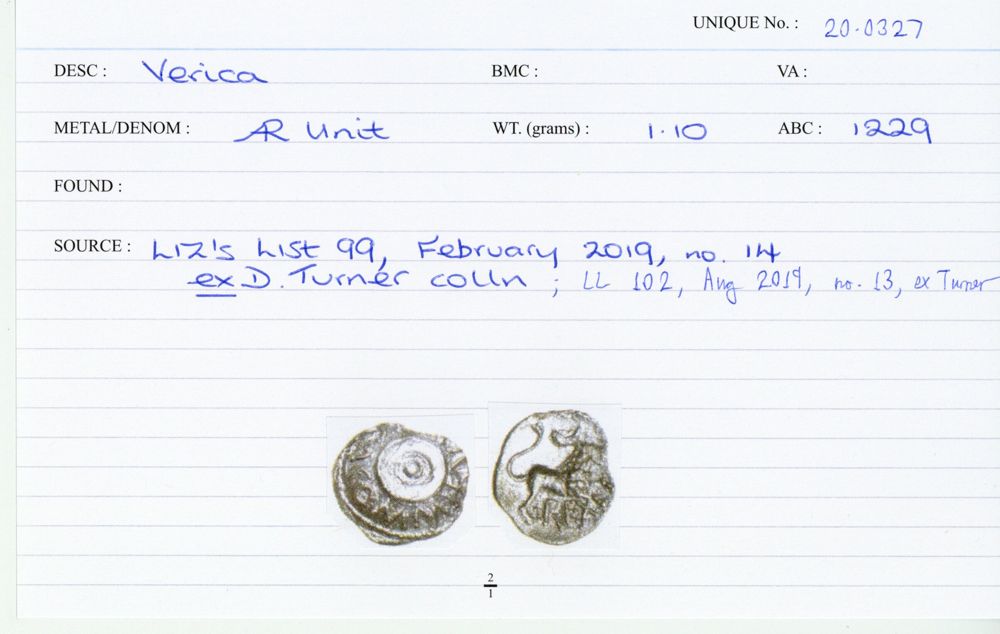 UNIQUE No. : 20.0327
DESC : Verica BMC : VA :
METAL/DENOM : AR Unit WT. (grams) : 1.10 ABC : 1229
FOUND :
SOURCE : Liz's List 99, February 2019, no. 14
ex D. Turner colln ; LL 102, Aug 2019, no. 13, ex Turner
REX
2
1